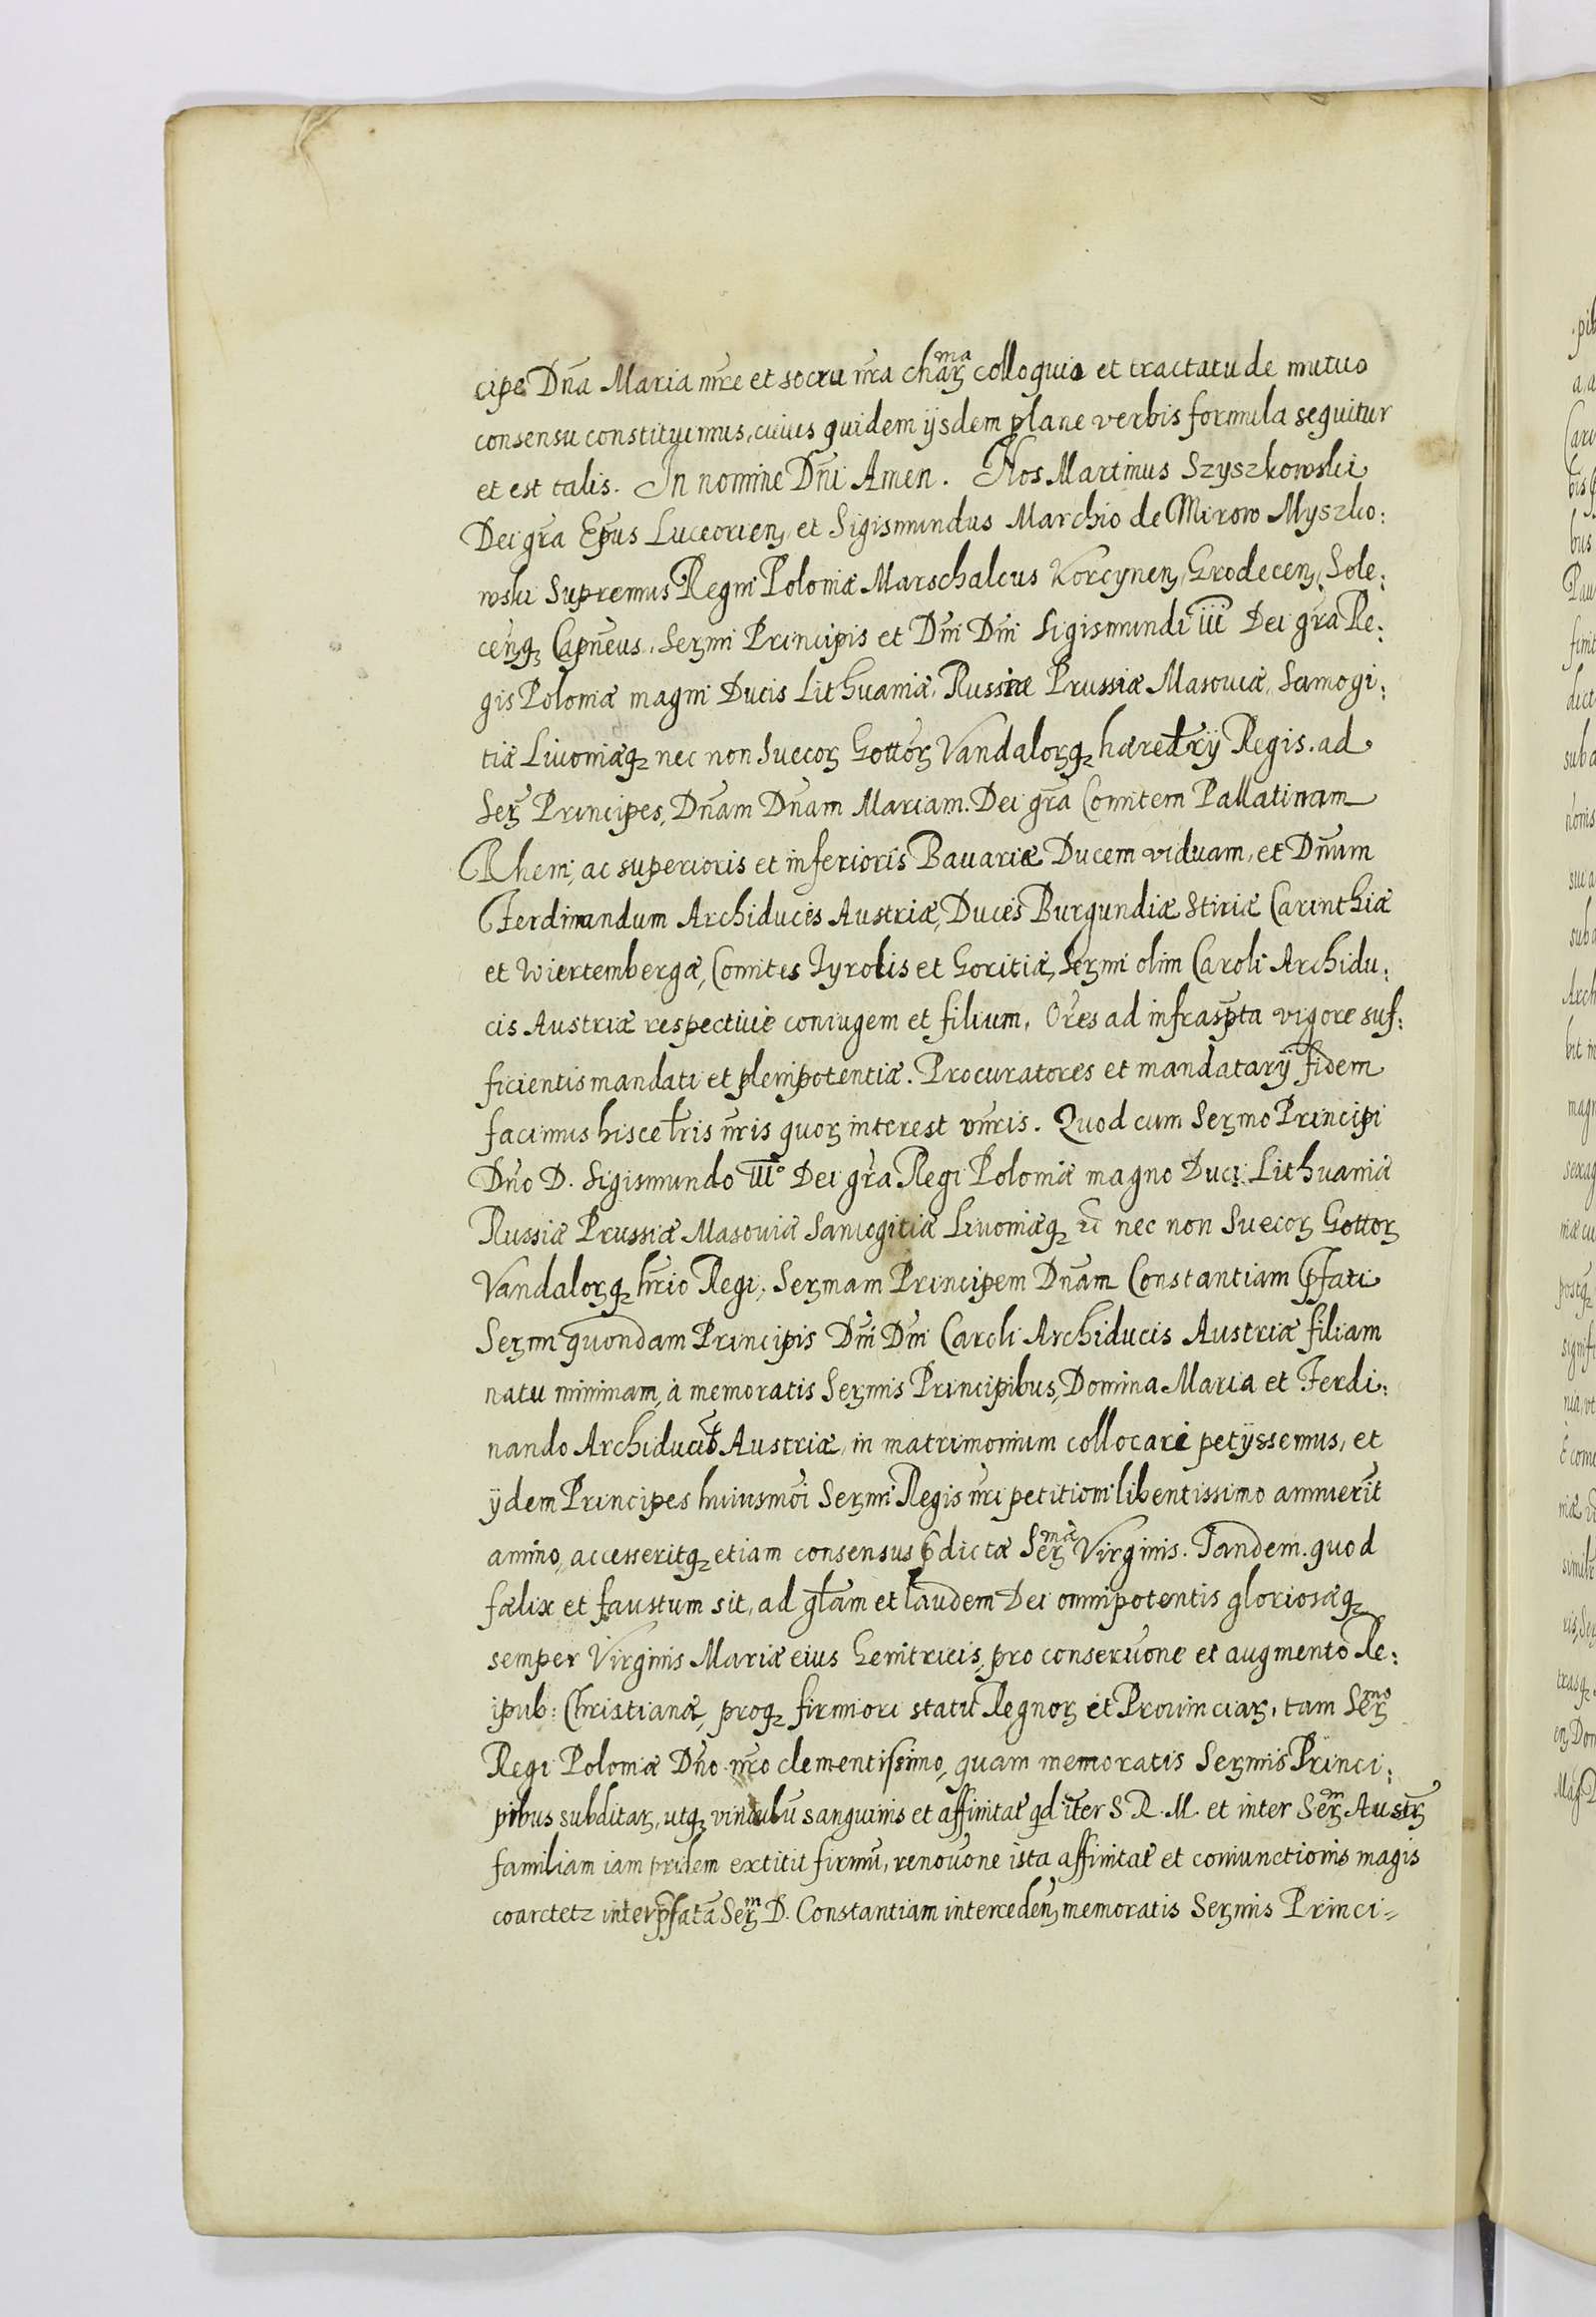 cipe Dna Maria mre et socru nra char̃ma colloquio et tractatu de mutuo
consensu constituimus, cuius quidem ijsdem plane verbis formula sequitur
et est talis. In nomine Dni Amen. Nos Martinus Szyszkowski
Dei gra Epus Luceorien, et Sigismundus Marchio de Mirow Myszko:
wski Supremus Regni Poloniæ Marschalcus Korcynen, Grodecen, Sole:
cenq₃ Capneus. Serm̃i Principis et Dni Dni Sigismundi iii Dei gra Re:
gis Poloniæ magni Ducis Lithuaniæ, Russiæ Prussiæ Masouiæ, Samogi:
tiæ Liuoniæq₃ nec non Suecoꝝ Gottoꝝ Vandaloꝝq₃ hæredrij Regis. ad
Ser Principes, Dnam Dnam Mariam. Dei gra Comitem Pallatinam
Rheni, ac superioris et inferioris Bauariæ Ducem viduam, et Dnum
Ferdinandum Archiducis Austriæ, Duces Burgundiæ Stiriæ Carinthiæ
et Wiertembergæ, Comites Tyrolis et Goritiæ, Sermi olim Caroli Archidu:
cis Austriæ respectiuè coniugem et filium, Ores ad infraspta vigore suf:
ficientis mandati et plenipotentiæ. Procuratores et mandatarij fidem
facimus hisce lris nris quoꝝ interest vnuris. Quod cum Sermo Principi
Dno D. Sigismundo iii° Dei gra Regi Poloniæ magno Duci Lithuaniæ
Russiæ Prussiæ Masouiæ Samogitiæ Liuoniæq₃ &c nec non Suecoꝝ Gottoꝝ
Vandaloꝝq₃ hrio Regi, Sermam Principem Dnam Constantiam pfati
Sermi quondam Principis Dni Dni Caroli Archiducis Austriæ filiam
natu minimam, à memoratis Sermis Principibus, Domina Maria et Ferdi:
nando Archiducib Austriæ, in matrimonium collocari petijssemus, et
ijdem Principes huiusmoi Sermi Regis nri petitioni libentissimo annuerit
amino, accesseritq₃ etiam consensus pdictæ Sermæ Virginis. Tandem. quod
fælix et faustum sit, ad glam et laudem Dei omnipotentis gloriosæq₃
semper Virginis Mariæ eius Genitricis, pro conseruone et augmento Re:
ipub: Christianæ, proq₃ firmiori statu Regnoꝝ et Prouinciaꝝ, tam Sermo
Regi Poloniæ Dno nro clementissimo, quam memoratis Sermis Princi:
pibus subditaꝝ, utq₃ vinculu sanguinis et affinitat qd iter S. R. M. et inter Serm Austr
familiam iam pridem extitit firmu, renouone ista affinitat et coniunctionis magis
coarctetz inter pfata Serm D. Constantiam interceden, memoratis Sermis Princi=